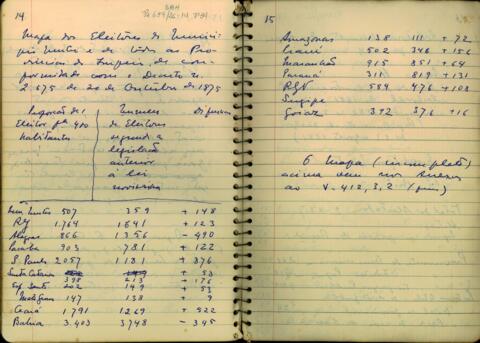 14
Mapa dos Eleitores do Munici
pio Neutro e de todas as Pro
vincias do Imperio, de con
formidade com o Decreto n.
2.675 de 20 de Outubro de 1875
Proporção de 1
Eleitor pª 400
habitantes
Numero
de Eleitores
segundo a
legislação
anterior
à lei
novissima
Differença
Mun Neutro 507 359 + 148
RJ 1.764 1641 + 123
Alagoas 866 1356 - 490
Paraiba 903 781 + 122
S. Paulo 2057 1181 + 876
Santa Catarina 398 213 + 176
Esp Santo 202 149 + 53
Mato Grosso 147 138 + 9
Ceará 1791 1269 + 522
Bahia 3.403 3748 - 345
15
Amazonas 138 111 + 72
Piaui 502 346 + 156
Maranhão 915 851 + 64
Paraná 311 819 + 131
RGN 584 476 + 108
Sergipe
Goiaz 392 376 + 16
O Mapa (incompleto)
acima vem nos Anexos
ao V. 412, 3, 2 (fim)